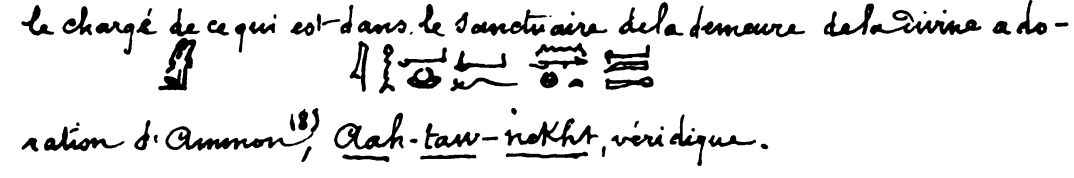 le chargé de ce qui est dans le sanctuaire de la demeure de la Divine ado-
ration d'Ammon (8), Aah-taw-nekht, véridique.